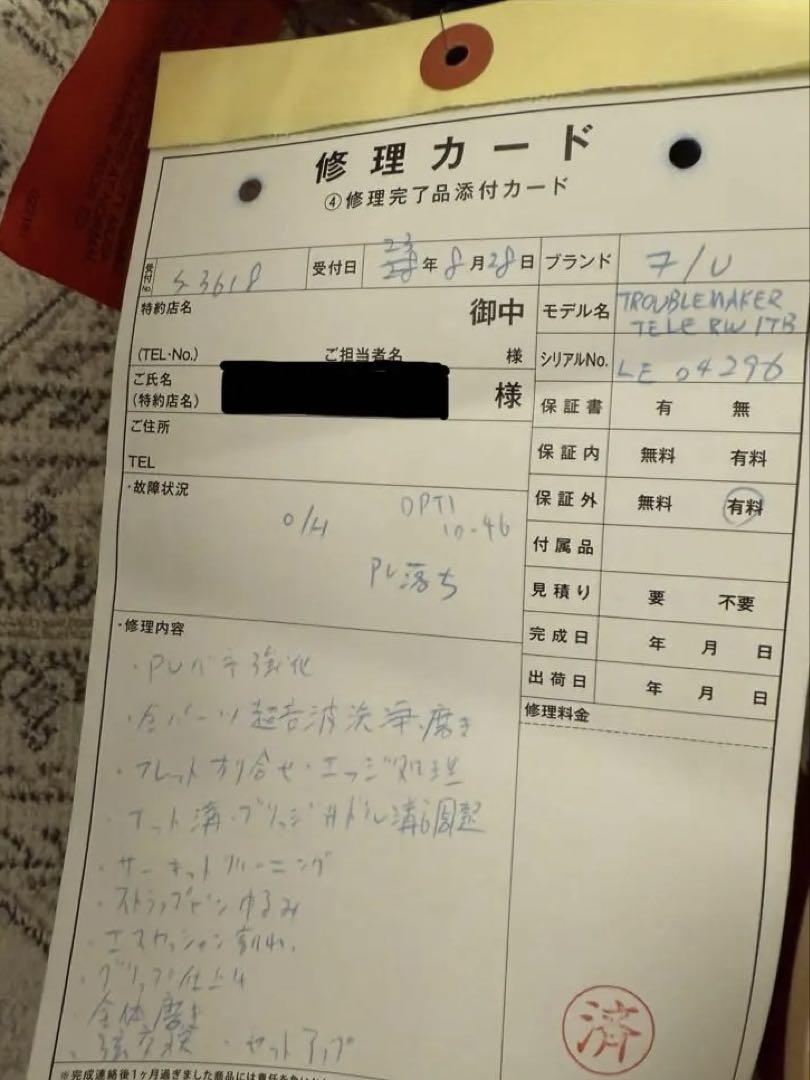 修理カード
④修理完了品添付カード
受付No. S3618 受付日 23年8月28日 ブランド F/U
特約店名 御中 モデル名 TROUBLEMAKER
TELE RW 1TB
(TEL・No.) ご担当者名 様 シリアルNo. LE 04296
ご氏名
(特約店名) 様 保証書 有 無
ご住所
TEL
保証内 無料 有料
・故障状況 保証外 無料 有料
O/H OPT1
10-46
PU落ち
付属品
見積り 要 不要
完成日 年 月 日
出荷日 年 月 日
修理料金
・修理内容
・PUバネ強化
・全パーツ超音波洗浄.磨き
・フレットすり合せ・エッジ処理
・ナット溝・ブリッジサドル溝調整
・サーキットクリーニング
・ストラップピンゆるみ
・エスカッション割れ
仕上げ
・全体磨き
・弦交換・セットアップ
済
※完成連絡後1ヶ月過ぎました商品には責任を